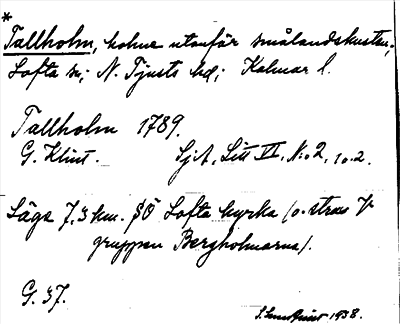 *
Tallholm, holme utanför smålandskusten;
Lofta sn; N. Tjusts hd; Kalmar l.
Tallholm 1789.
G. Klint. SjA, Litt VI, N:o 2, 1 o. 2.
Läge 7,3 km. SÖ Lofta kyrka (o. strax V
gruppen Bergholmarna).
G. 37.
1938.